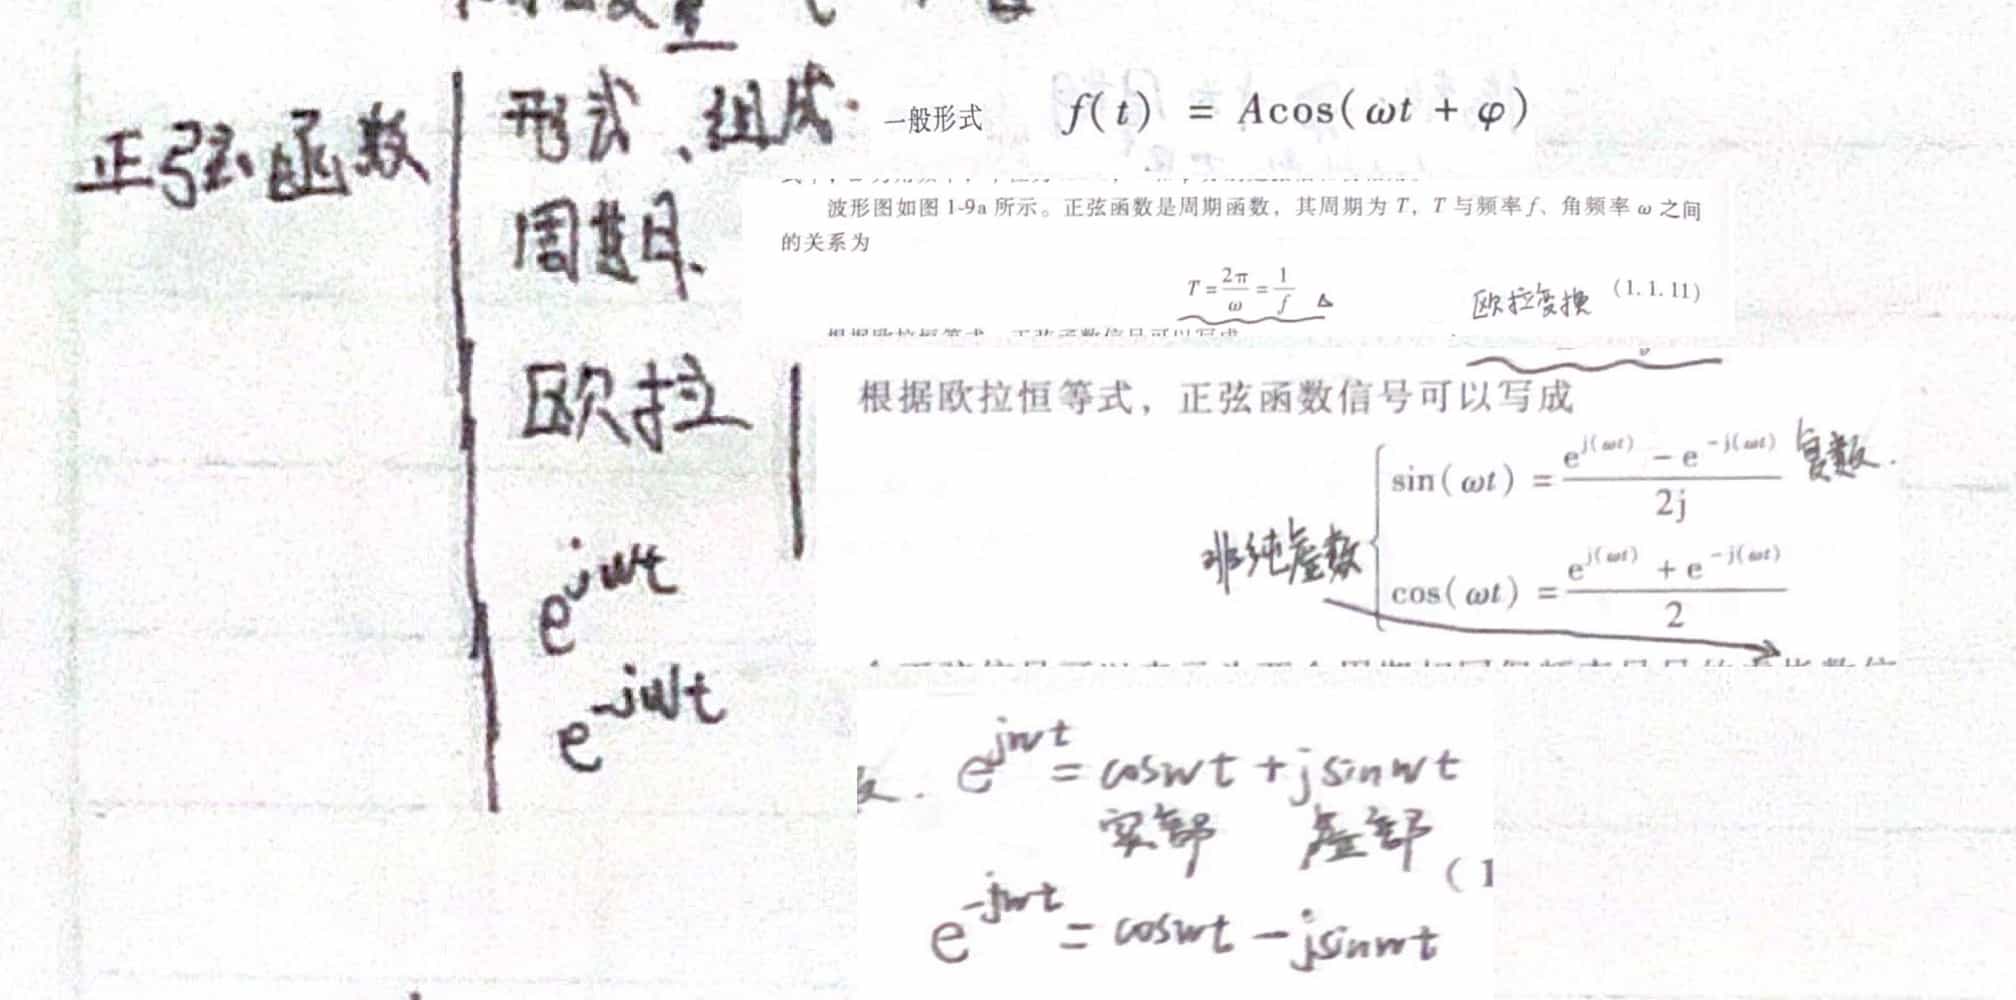 正弦函数
形式、组成.
一般形式 f(t) = Acos(ωt + φ)
周期.
波形图如图 1-9a 所示。正弦函数是周期函数，其周期为 T，T 与频率 f、角频率 ω 之间
的关系为
T = 2π/ω = 1/f △ 欧拉变换 (1.1.11)
欧拉
根据欧拉恒等式，正弦函数信号可以写成
sin(ωt) = (e^{j(ωt)} - e^{-j(ωt)})/2j 复数.
非纯虚数
cos(ωt) = (e^{j(ωt)} + e^{-j(ωt)})/2
e^{jωt}
e^{-jωt}
e^{jωt} = cosωt + jsinωt
实部 虚部
(1
e^{-jωt} = cosωt - jsinωt